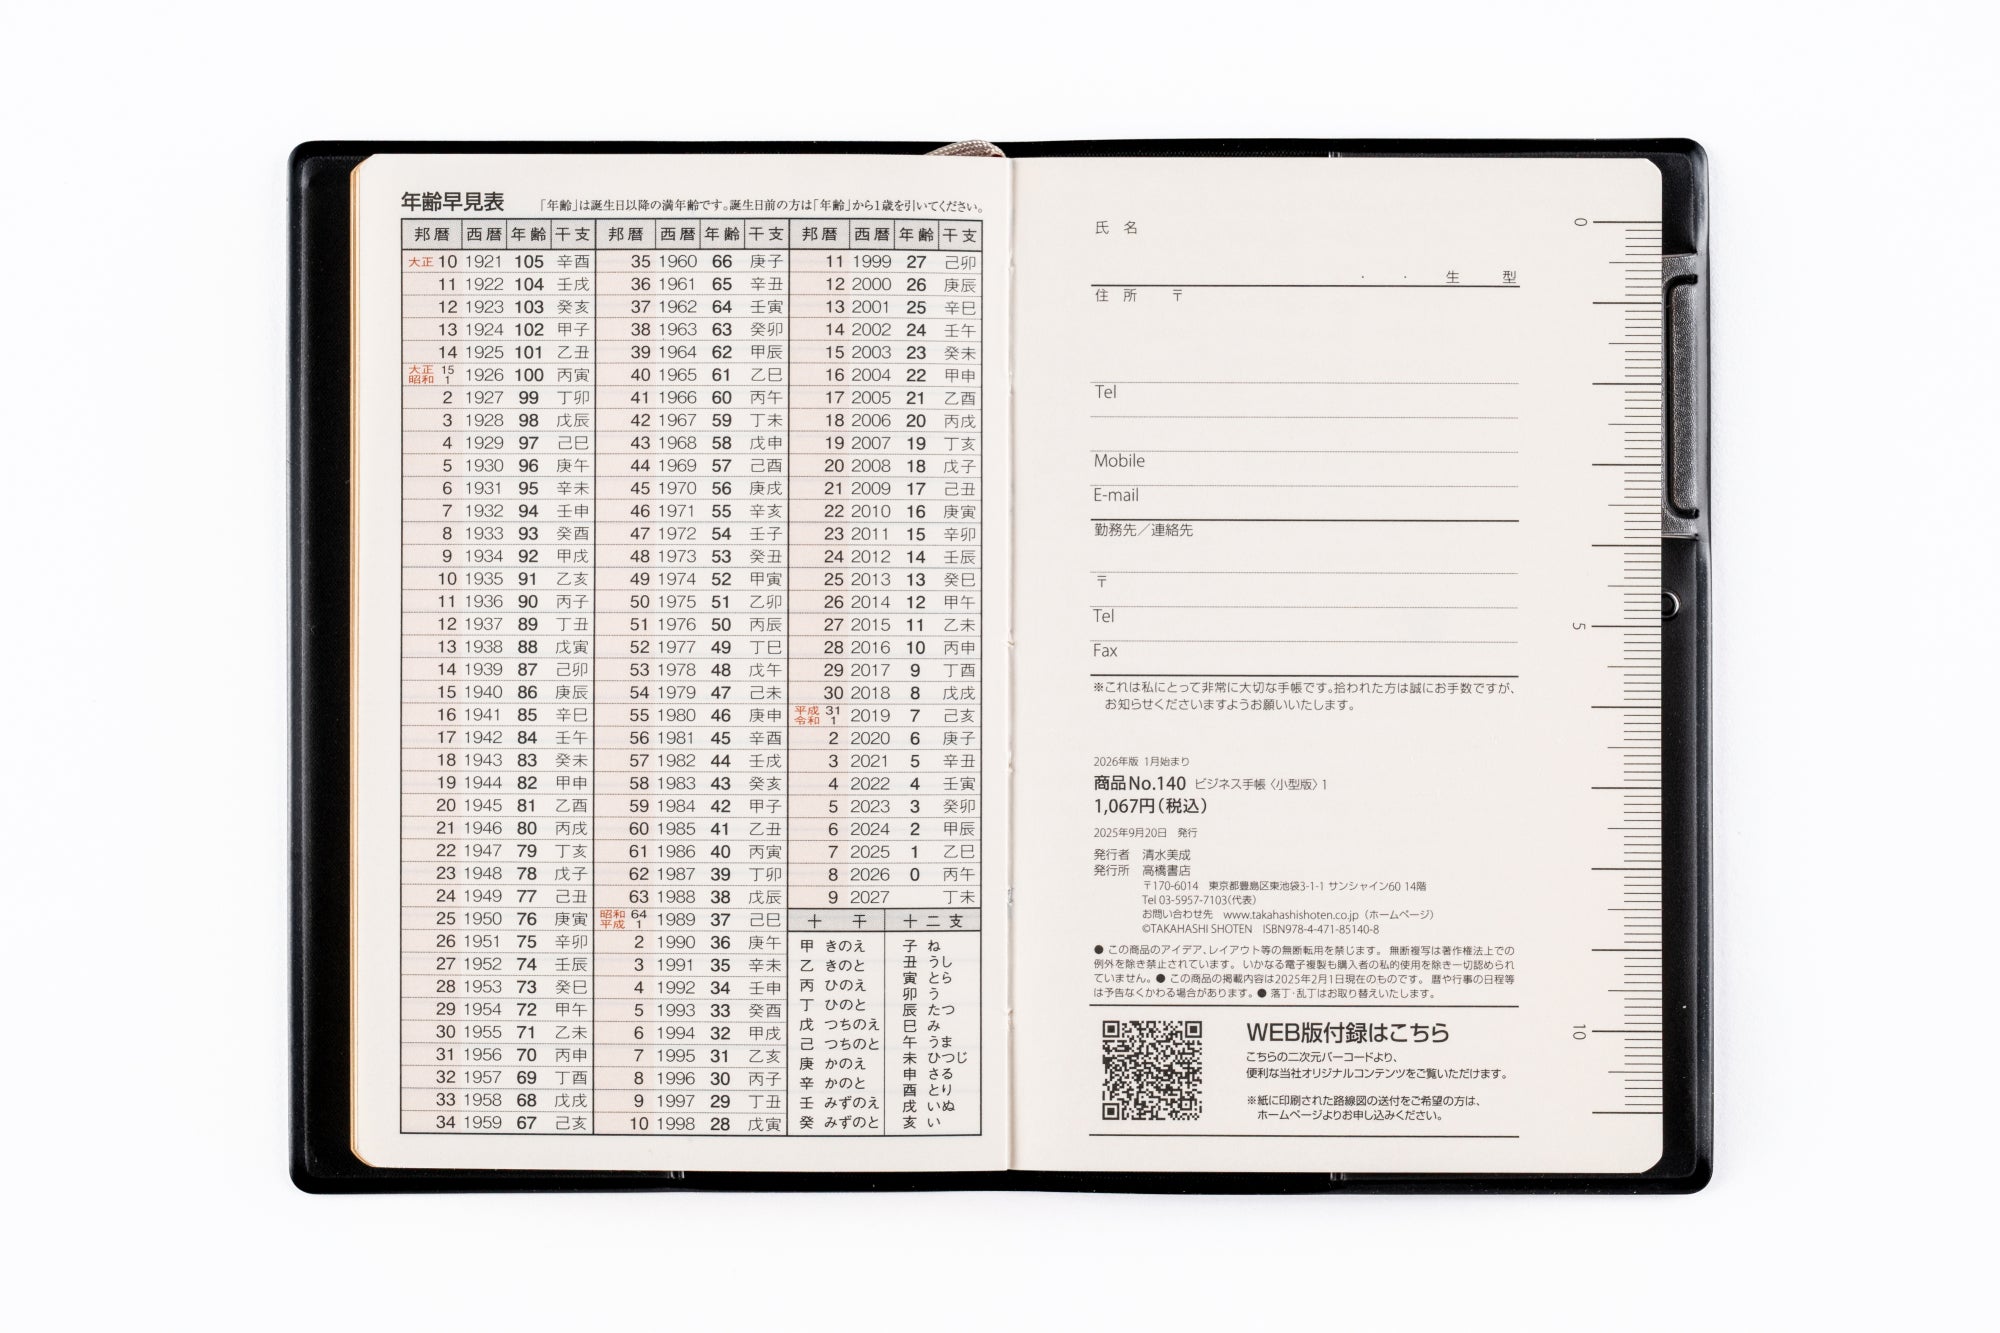 年齢早見表 「年齢」は誕生日以降の満年齢です。誕生日前の方は「年齢」から1歳を引いてください。
邦暦 西暦 年齢 干支 邦暦 西暦 年齢 干支 邦暦 西暦 年齢 干支
大正 10 1921 105 辛酉 35 1960 66 庚子 11 1999 27 己卯
11 1922 104 壬戌 36 1961 65 辛丑 12 2000 26 庚辰
12 1923 103 癸亥 37 1962 64 壬寅 13 2001 25 辛巳
13 1924 102 甲子 38 1963 63 癸卯 14 2002 24 壬午
14 1925 101 乙丑 39 1964 62 甲辰 15 2003 23 癸未
大正 15 昭和 1 1926 100 丙寅 40 1965 61 乙巳 16 2004 22 甲申
2 1927 99 丁卯 41 1966 60 丙午 17 2005 21 乙酉
3 1928 98 戊辰 42 1967 59 丁未 18 2006 20 丙戌
4 1929 97 己巳 43 1968 58 戊申 19 2007 19 丁亥
5 1930 96 庚午 44 1969 57 己酉 20 2008 18 戊子
6 1931 95 辛未 45 1970 56 庚戌 21 2009 17 己丑
7 1932 94 壬申 46 1971 55 辛亥 22 2010 16 庚寅
8 1933 93 癸酉 47 1972 54 壬子 23 2011 15 辛卯
9 1934 92 甲戌 48 1973 53 癸丑 24 2012 14 壬辰
10 1935 91 乙亥 49 1974 52 甲寅 25 2013 13 癸巳
11 1936 90 丙子 50 1975 51 乙卯 26 2014 12 甲午
12 1937 89 丁丑 51 1976 50 丙辰 27 2015 11 乙未
13 1938 88 戊寅 52 1977 49 丁巳 28 2016 10 丙申
14 1939 87 己卯 53 1978 48 戊午 29 2017 9 丁酉
15 1940 86 庚辰 54 1979 47 己未 30 2018 8 戊戌
16 1941 85 辛巳 55 1980 46 庚申 平成 31 令和 1 2019 7 己亥
17 1942 84 壬午 56 1981 45 辛酉 2 2020 6 庚子
18 1943 83 癸未 57 1982 44 壬戌 3 2021 5 辛丑
19 1944 82 甲申 58 1983 43 癸亥 4 2022 4 壬寅
20 1945 81 乙酉 59 1984 42 甲子 5 2023 3 癸卯
21 1946 80 丙戌 60 1985 41 乙丑 6 2024 2 甲辰
22 1947 79 丁亥 61 1986 40 丙寅 7 2025 1 乙巳
23 1948 78 戊子 62 1987 39 丁卯 8 2026 0 丙午
24 1949 77 己丑 63 1988 38 戊辰 9 2027 丁未
25 1950 76 庚寅 昭和 64 平成 1 1989 37 己巳 十干 十二支
26 1951 75 辛卯 2 1990 36 庚午
27 1952 74 壬辰 3 1991 35 辛未
28 1953 73 癸巳 4 1992 34 壬申
29 1954 72 甲午 5 1993 33 癸酉
30 1955 71 乙未 6 1994 32 甲戌
31 1956 70 丙申 7 1995 31 乙亥
32 1957 69 丁酉 8 1996 30 丙子
33 1958 68 戊戌 9 1997 29 丁丑
34 1959 67 己亥 10 1998 28 戊寅
甲 きのえ
乙 きのと
丙 ひのえ
丁 ひのと
戊 つちのえ
己 つちのと
庚 かのえ
辛 かのと
壬 みずのえ
癸 みずのと
子 ね
丑 うし
寅 とら
卯 う
辰 たつ
巳 み
午 うま
未 ひつじ
申 さる
酉 とり
戌 いぬ
亥 い
氏 名
・ ・ 生 型
住 所 〒
Tel
Mobile
E-mail
勤務先／連絡先
〒
Tel
Fax
※これは私にとって非常に大切な手帳です。拾われた方は誠にお手数ですが、
お知らせくださいますようお願いいたします。
2026年版 1月始まり
商品No.140 ビジネス手帳〈小型版〉1
1,067円(税込)
2025年9月20日 発行
発行者 清水美成
発行所 高橋書店
〒170-6014 東京都豊島区東池袋3-1-1 サンシャイン60 14階
Tel 03-5957-7103(代表)
お問い合わせ先 www.takahashishoten.co.jp（ホームページ）
©TAKAHASHI SHOTEN ISBN978-4-471-85140-8
● この商品のアイデア、レイアウト等の無断転用を禁じます。 無断複写は著作権法上での
例外を除き禁止されています。 いかなる電子複製も購入者の私的使用を除き一切認められ
ていません。● この商品の掲載内容は2025年2月1日現在のものです。 暦や行事の日程等
は予告なくかわる場合があります。● 落丁・乱丁はお取り替えいたします。
WEB版付録はこちら
こちらの二次元バーコードより、
便利な当社オリジナルコンテンツをご覧いただけます。
※紙に印刷された路線図の送付をご希望の方は、
ホームページよりお申し込みください。
0
5
10